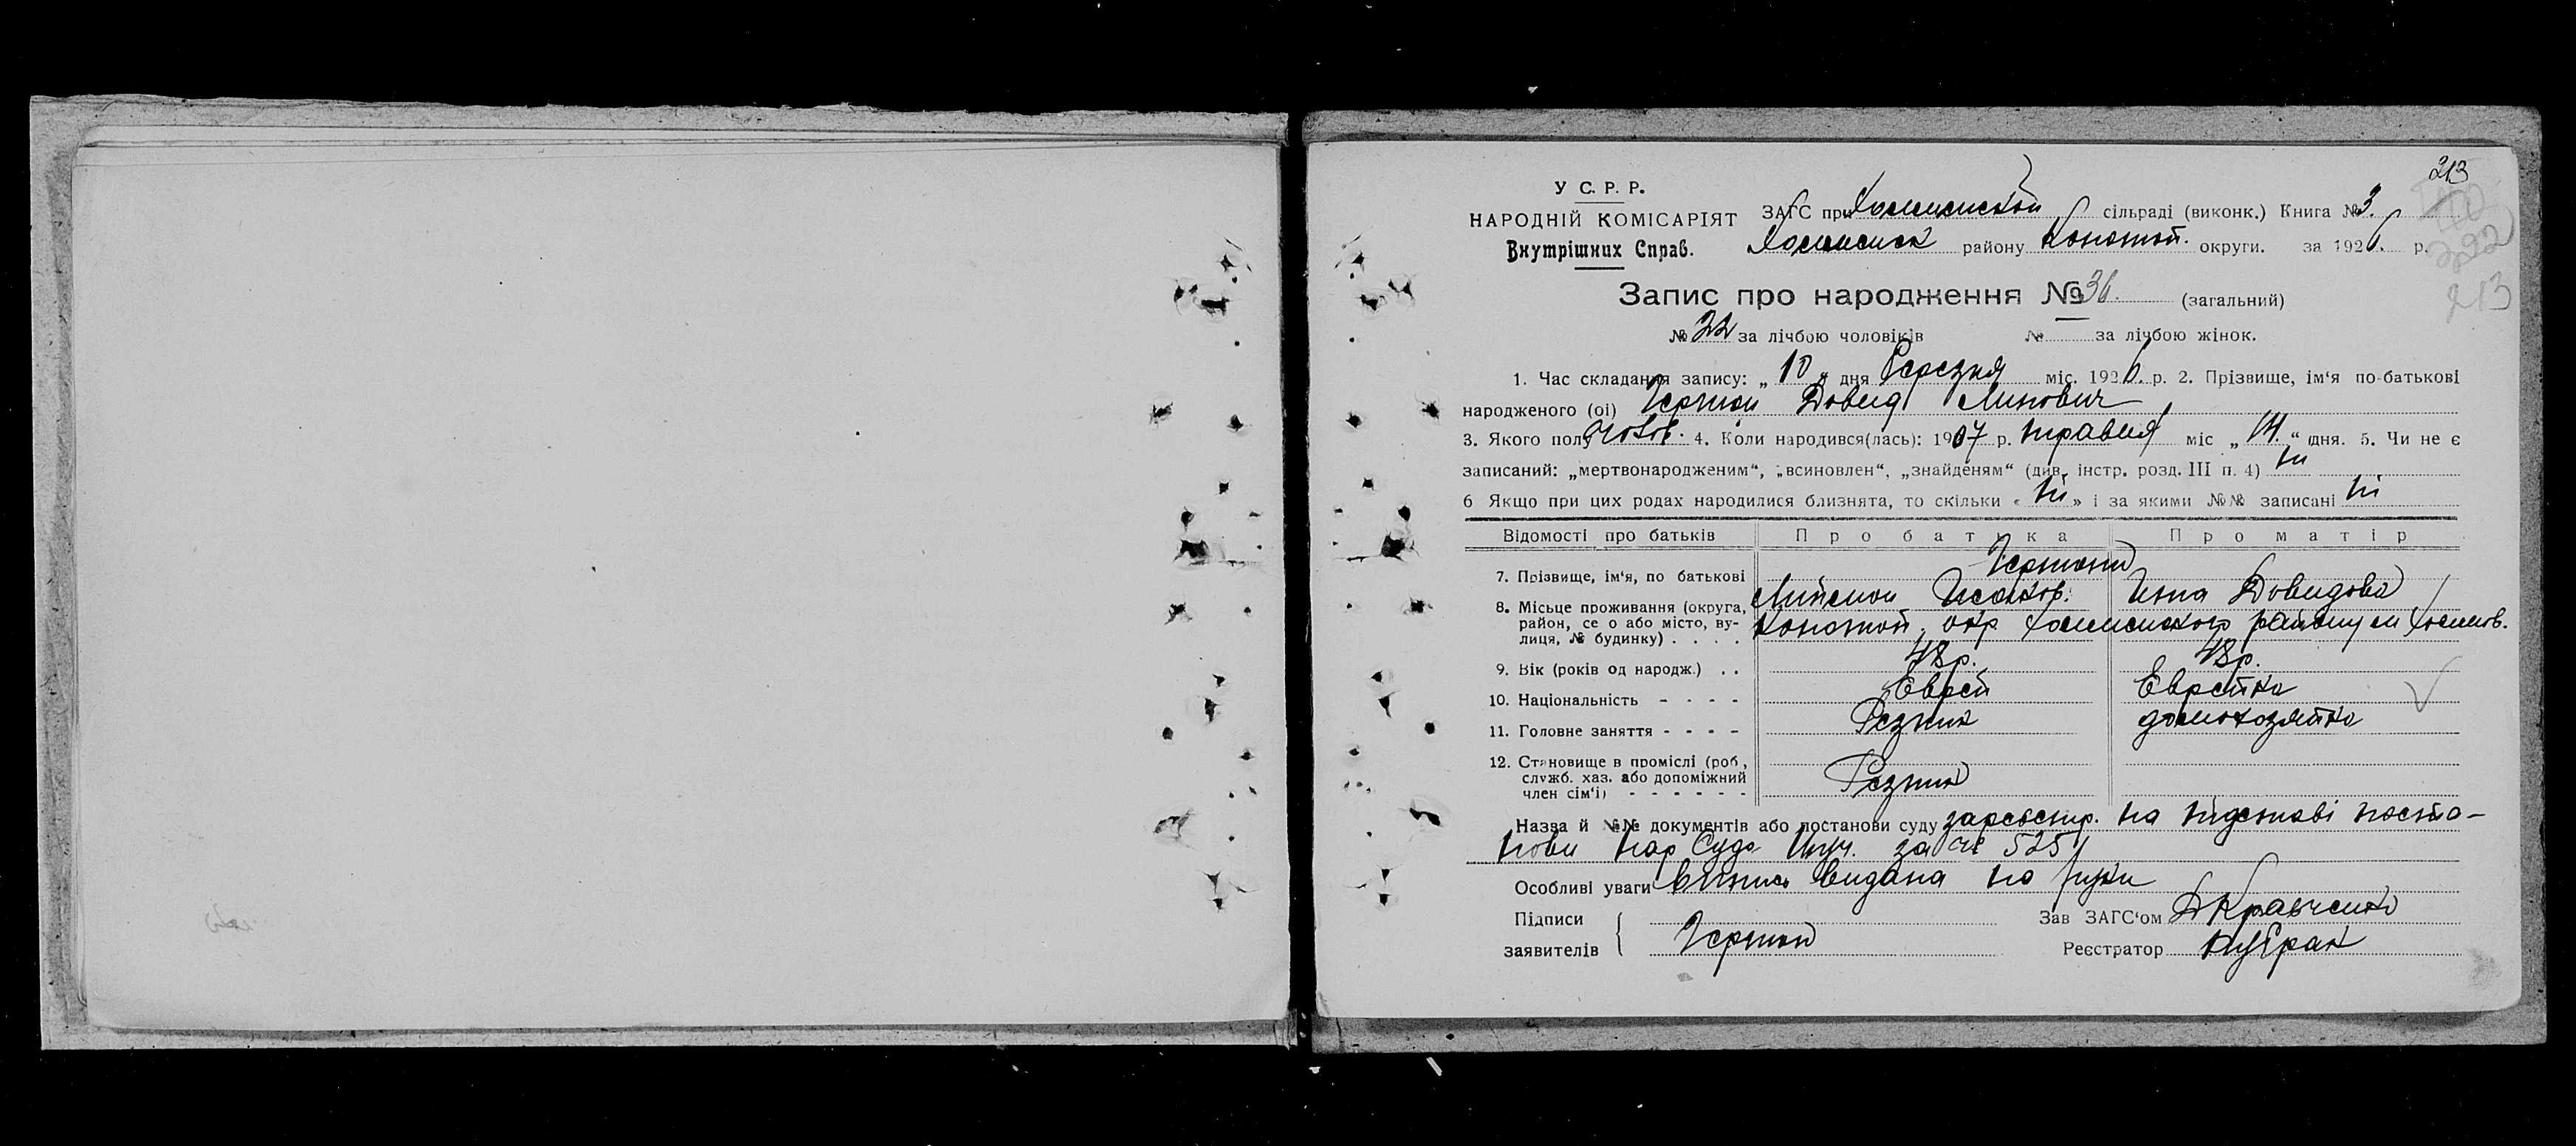 213
У С. Р. Р.
НАРОДНІЙ КОМІСАРІЯТ
Внутрішних Справ.
ЗАГС при сільраді (виконк.) Книга № 3.
району Конотоп. округи. за 1926 р.
292
213
Запис про народження № 36. (загальний)
№ 22 за лічбою чоловіків № за лічбою жінок.
1. Час складання запису: „ 10 „ дня Березня міс. 1926. р. 2. Прізвище, ім‘я по-батькові
народженого (оі) Довид
3. Якого полу чолов. 4. Коли народився(лась): 1907 р. травня міс „ 14. “ дня. 5. Чи не є
записаний: „мертвонародженим“, „всиновлен“, „знайденям“ (див. інстр. розд. III п. 4) ні
6 Якщо при цих родах народилися близнята, то скільки « ні » і за якими №№ записані ні
Відомості про батьків Про батька Про матір
7. Прізвище, ім‘я, по батькові
Довидова
8. Місьце проживання (округа,
район, се о або місто, ву-
лиця, № будинку) . . . .
Конотоп. окр. району м
9. Вік (років од народж.) . . 48р. 48р.
10. Національність - - - - Еврей Еврейка
11. Головне заняття - - - - Резник домохозяйка
12. Становище в промислі (роб,
служб. хаз. або допоміжний
член сім‘і) - - - - - - Резник
Назва й №№ документів або постанови суду зареєстр. на підставі поста-
нови Нар Суда за № 525
Особливі уваги видана на руки
Підписи
заявителів
Зав ЗАГС‘ом Кравченко
Реєстратор